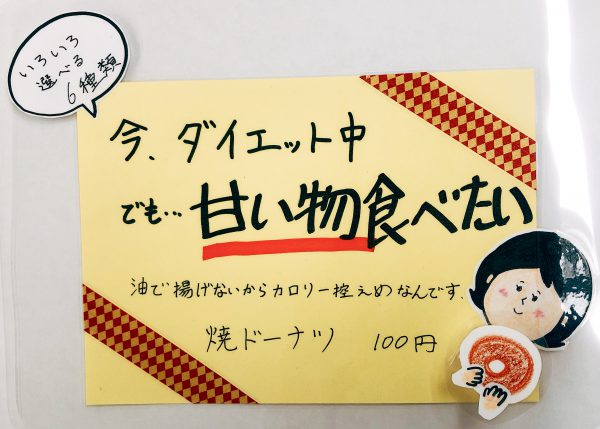 いろいろ
選べる
6種類
今、ダイエット中
でも…甘い物食べたい
油で揚げないからカロリー控えめなんです。
焼ドーナツ 100円